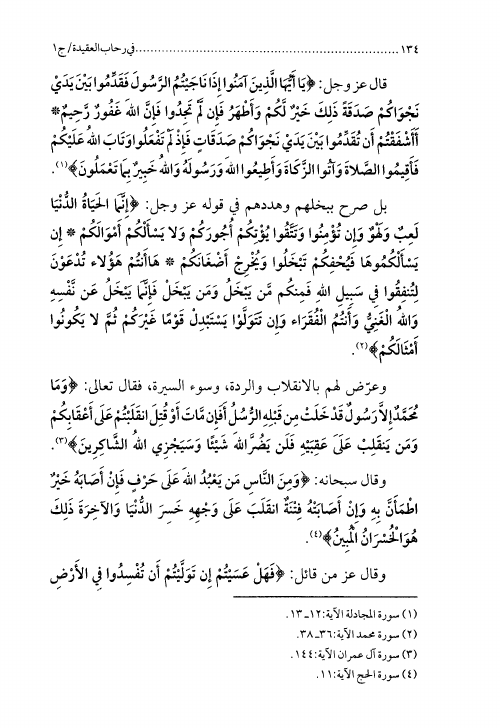 ١٣٤ ........................................................... في رحاب العقيدة/ ج١
قال عز وجل: ﴿يَا أَيُّهَا الَّذِينَ آمَنُوا إِذَا نَاجَيْتُمُ الرَّسُولَ فَقَدِّمُوا بَيْنَ يَدَيْ
نَجْوَاكُمْ صَدَقَةً ذَلِكَ خَيْرٌ لَكُمْ وَأَطْهَرُ فَإِن لَّمْ تَجِدُوا فَإِنَّ اللهَ غَفُورٌ رَحِيمٌ*
أَأَشْفَقْتُمْ أَن تُقَدِّمُوا بَيْنَ يَدَيْ نَجْوَاكُمْ صَدَقَاتٍ فَإِذْ لَمْ تَفْعَلُوا وَتَابَ اللهُ عَلَيْكُمْ
فَأَقِيمُوا الصَّلاةَ وَآتُوا الزَّكَاةَ وَأَطِيعُوا اللهَ وَرَسُولَهُ وَاللهُ خَبِيرٌ بِمَا تَعْمَلُونَ﴾(١).
بل صرح ببخلهم وهددهم في قوله عز وجل: ﴿إِنَّمَا الحَيَاةُ الدُّنْيَا
لَعِبٌ وَلَهْوٌ وَإِن تُؤْمِنُوا وَتَتَّقُوا يُؤْتِكُمْ أُجُورَكُمْ وَلا يَسْأَلْكُمْ أَمْوَالَكُمْ * إِن
يَسْأَلْكُمُوهَا فَيُحْفِكُمْ تَبْخَلُوا وَيُخْرِجْ أَضْغَانَكُمْ * هَاأَنتُمْ هَؤُلاء تُدْعَوْنَ
لِتُنفِقُوا فِي سَبِيلِ اللهِ فَمِنكُم مَّن يَبْخَلُ وَمَن يَبْخَلْ فَإِنَّمَا يَبْخَلُ عَن نَّفْسِهِ
وَاللهُ الْغَنِيُّ وَأَنتُمُ الْفُقَرَاء وَإِن تَتَوَلَّوْا يَسْتَبْدِلْ قَوْمًا غَيْرَكُمْ ثُمَّ لا يَكُونُوا
أَمْثَالَكُمْ﴾(٢).
وعرّض لهم بالانقلاب والردة، وسوء السيرة، فقال تعالى: ﴿وَمَا
مُحَمَّدٌ إِلاَّ رَسُولٌ قَدْ خَلَتْ مِن قَبْلِهِ الرُّسُلُ أَفَإِن مَّاتَ أَوْ قُتِلَ انقَلَبْتُمْ عَلَى أَعْقَابِكُمْ
وَمَن يَنقَلِبْ عَلَىَ عَقِبَيْهِ فَلَن يَضُرَّ اللهَ شَيْئًا وَسَيَجْزِي اللهُ الشَّاكِرِينَ﴾(٣).
وقال سبحانه: ﴿وَمِنَ النَّاسِ مَن يَعْبُدُ اللهَ عَلَى حَرْفٍ فَإِنْ أَصَابَهُ خَيْرٌ
اطْمَأَنَّ بِهِ وَإِنْ أَصَابَتْهُ فِتْنَةٌ انقَلَبَ عَلَى وَجْهِهِ خَسِرَ الدُّنْيَا وَالآخِرَةَ ذَلِكَ
هُوَ الْخُسْرَانُ المُبِينُ﴾(٤).
وقال عز من قائل: ﴿فَهَلْ عَسَيْتُمْ إِن تَوَلَّيْتُمْ أَن تُفْسِدُوا فِي الأَرْضِ
(١) سورة المجادلة الآية: ١٢-١٣.
(٢) سورة محمد الآية: ٣٦-٣٨.
(٣) سورة آل عمران الآية: ١٤٤.
(٤) سورة الحج الآية: ١١.